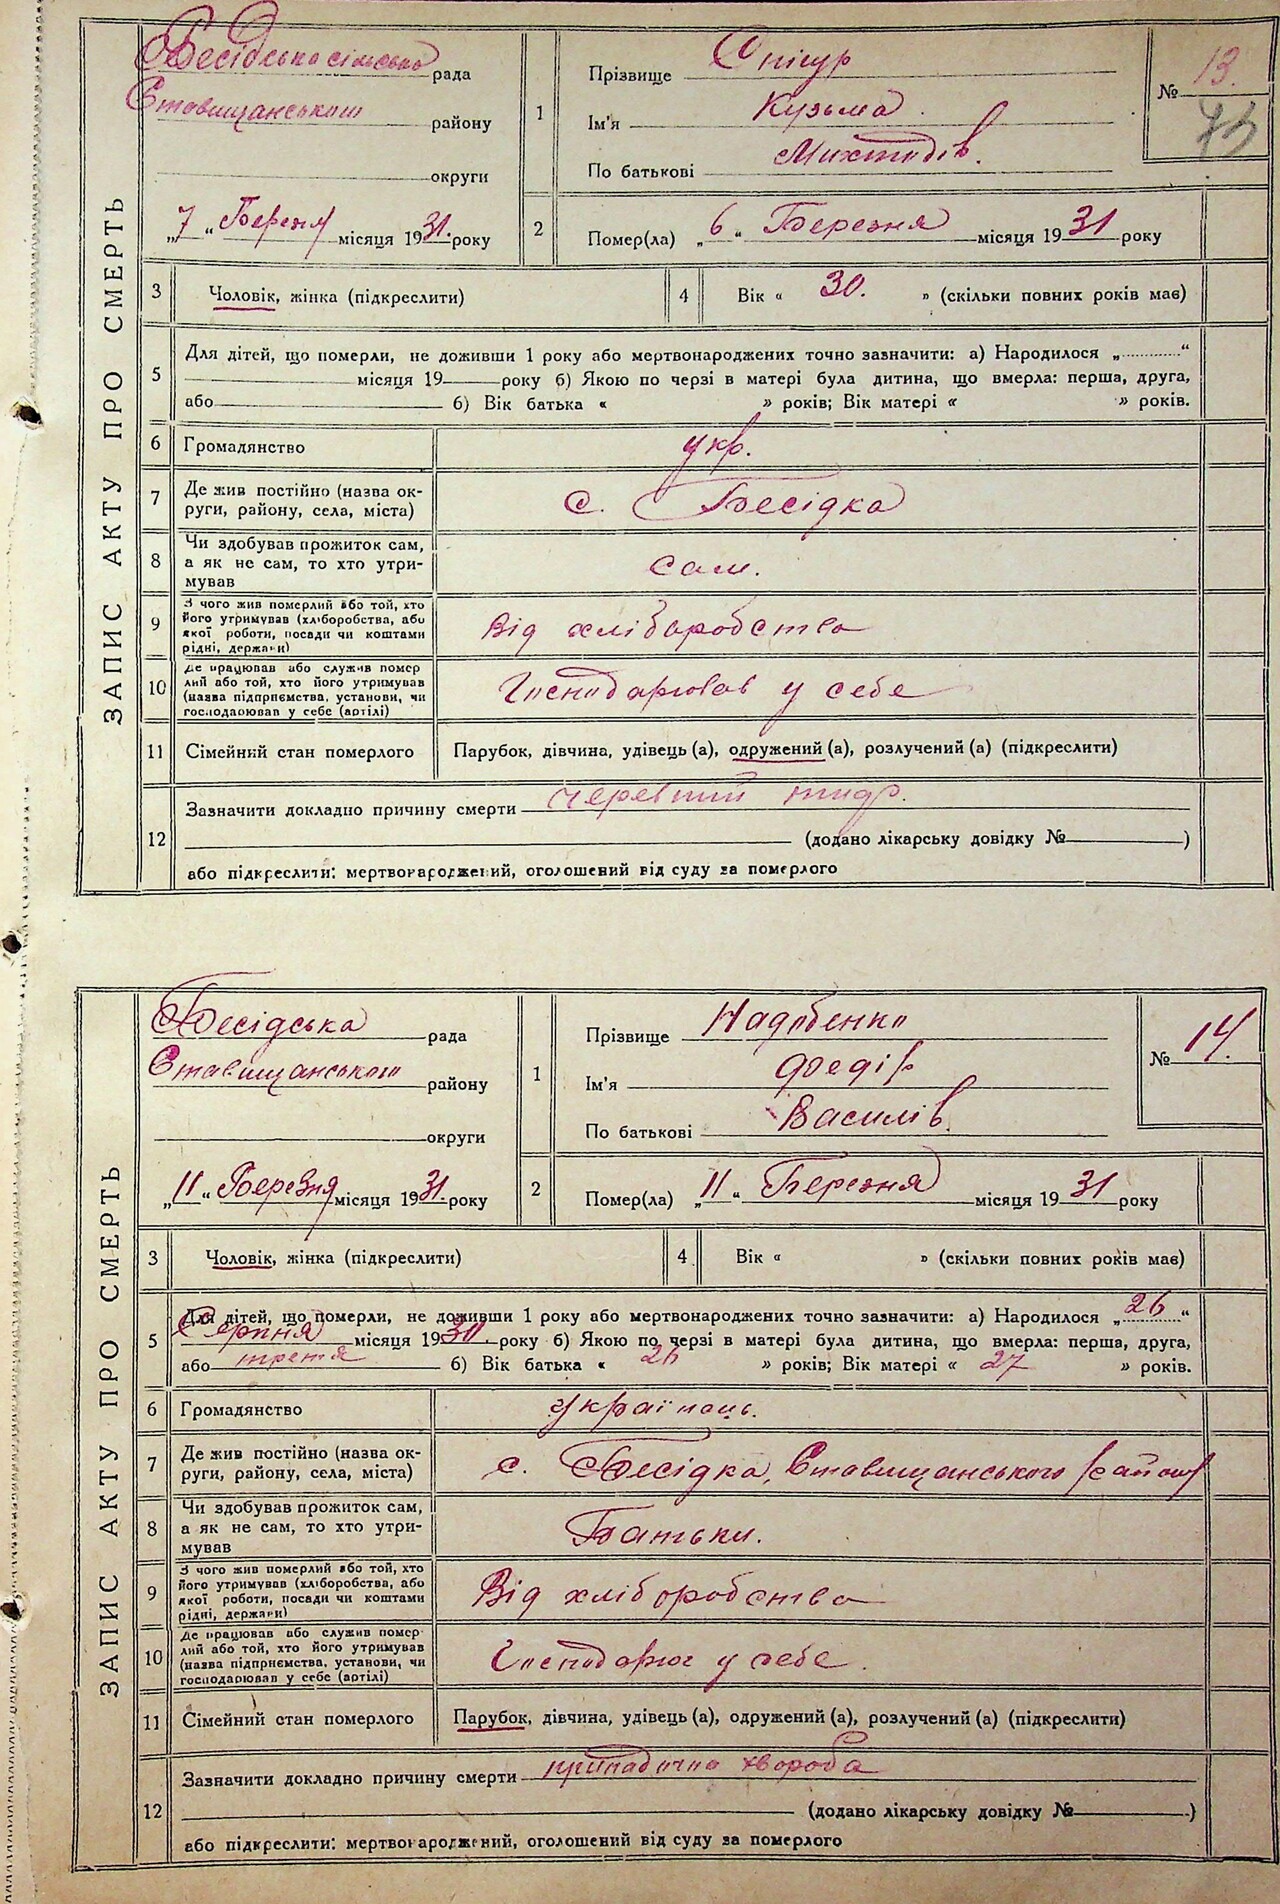 ЗАПИС АКТУ ПРО СМЕРТЬ
Бесідська сільська рада
Ставищанського району
округи
„7“ Березня місяця 1931. року
1
Прізвище
Ім'я Кузьма
По батькові
№ 13.
73
2
Помер(ла) „6“ Березня місяця 1931 року
3
Чоловік, жінка (підкреслити)
4
Вік « 30. » (скільки повних років має)
5
Для дітей, що померли, не доживши 1 року або мертвонароджених точно зазначити: а) Народилося „ “
місяця 19 року б) Якою по черзі в матері була дитина, що вмерла: перша, друга,
або б) Вік батька « » років; Вік матері « » років.
6
Громадянство
укр.
7
Де жив постійно (назва ок-
руги, району, села, міста)
с. Бесідка
8
Чи здобував прожиток сам,
а як не сам, то хто утри-
мував
сам.
9
З чого жив померлий або той, хто
його утримував (хліборобства, або
якої роботи, посади чи коштами
рідні, держави)
Від хліборобства
10
Де працював або служив помер
лий або той, хто його утримував
(назва підприємства, установи, чи
господарював у себе (артілі)
Господарював у себе
11
Сімейний стан померлого
Парубок, дівчина, удівець (а), одружений (а), розлучений (а) (підкреслити)
12
Зазначити докладно причину смерти черевний тиф.
(додано лікарську довідку № )
або підкреслити: мертвонароджений, оголошений від суду за померлого
ЗАПИС АКТУ ПРО СМЕРТЬ
Бесідська рада
Ставищанського району
округи
„11“ Березня місяця 1931. року
1
Прізвище Надобенко
Ім'я Федір
По батькові Василів.
№ 14.
2
Помер(ла) „11“ Березня місяця 1931 року
3
Чоловік, жінка (підкреслити)
4
Вік « » (скільки повних років має)
5
Для дітей, що померли, не доживши 1 року або мертвонароджених точно зазначити: а) Народилося „26“
Серпня місяця 1930. року б) Якою по черзі в матері була дитина, що вмерла: перша, друга,
або третя б) Вік батька « 26 » років; Вік матері « 27 » років.
6
Громадянство
Українець.
7
Де жив постійно (назва ок-
руги, району, села, міста)
с. Бесідка, Ставищанського району
8
Чи здобував прожиток сам,
а як не сам, то хто утри-
мував
Батьки.
9
З чого жив померлий або той, хто
його утримував (хліборобства, або
якої роботи, посади чи коштами
рідні, держави)
Від хліборобства
10
Де працював або служив помер
лий або той, хто його утримував
(назва підприємства, установи, чи
господарював у себе (артілі)
Господарює у себе.
11
Сімейний стан померлого
Парубок, дівчина, удівець (а), одружений (а), розлучений (а) (підкреслити)
12
Зазначити докладно причину смерти припадочна хвороба
(додано лікарську довідку № )
або підкреслити: мертвонароджений, оголошений від суду за померлого